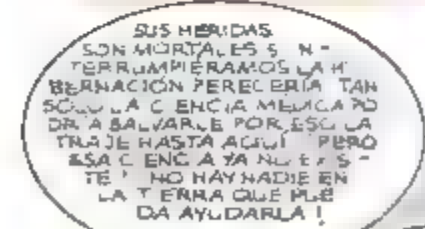 SUS HERIDAS
SON MORTALES SI IN-
TERRUMPIÉRAMOS LA HI
BERNACIÓN PERECERÍA TAN
SÓLO LA CIENCIA MÉDICA PO
DRÍA SALVARLE POR ESO LA
TRAJE HASTA AQUÍ PERO
ESA CIENCIA YA NO EXIS-
TE ! NO HAY NADIE EN
LA TIERRA QUE PUE
DA AYUDARLA !